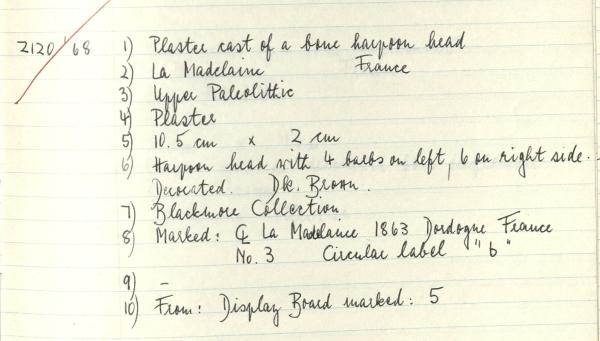 2120 '68 1) Plaster cast of a bone harpoon head
2) La Madelaine France
3) Upper Paleolithic
4) Plaster
5) 10.5 cm x 2 cm
6) Harpoon head with 4 barbs on left, 6 on right side.
Decorated. Dk. Brown.
7) Blackmore Collection
8) Marked: La Madelaine 1863 Dordogne France
No. 3 Circular label "6"
9) -
10) From: Display Board marked: 5